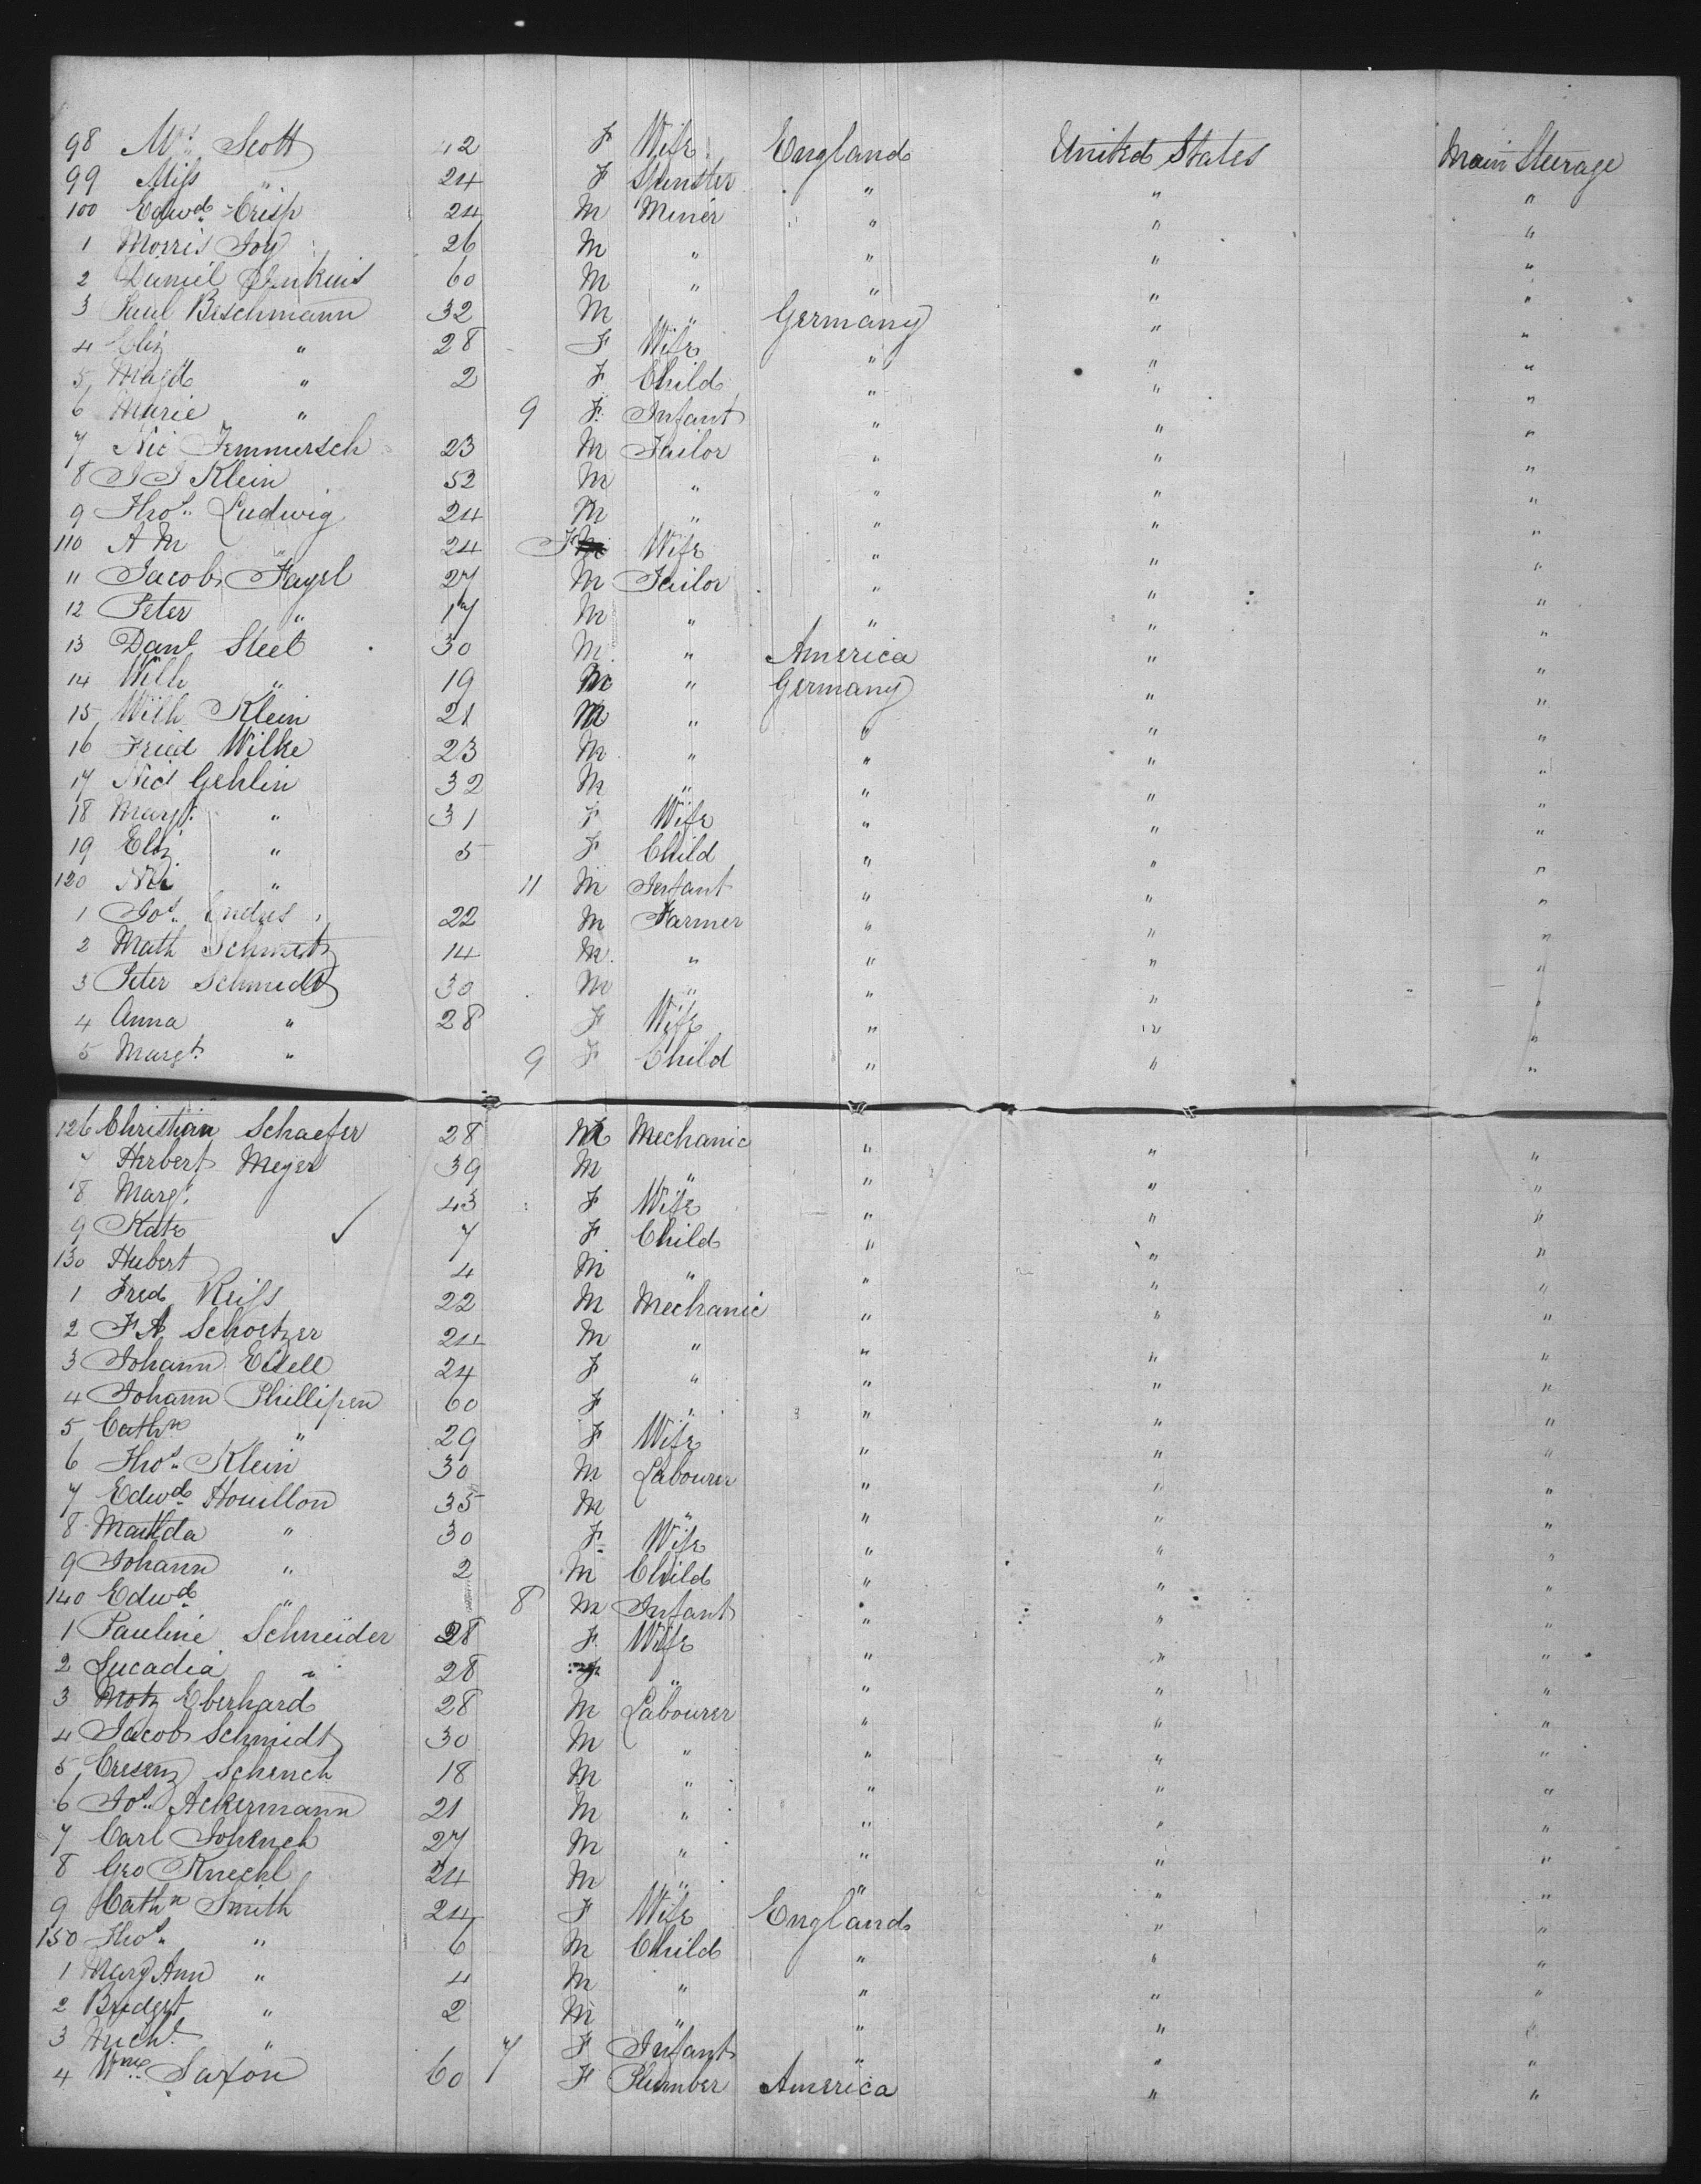 98 Mrs Scott 42 F Wife England United States Main Steerage
99 Miss " 24 F Spinster " " "
100 Edwd Crisp 24 M Miner " " "
1 Morris Joy 26 M " " " "
2 Daniel Jenkins 60 M " " " "
3 Paul Beschmann 32 M " Germany " "
4 Eliz " 28 F Wife " " "
5 Magd " 2 F Child " " "
6 Marie " 9 F Infant " " "
7 Nic 23 M Tailor " " "
8 J J Klein 52 M " " " "
9 Thos Ludwig 24 M " " " "
110 A M " 24 F Wife " " "
11 Jacob Fagel 27 M Tailor " " "
12 Peter " 17 M " " " "
13 Danl Steel 30 M " America " "
14 Willh " 19 M " Germany " "
15 Wilh Klein 21 M " " " "
16 Fried Wilke 23 M " " " "
17 Nics Gehlin 32 M " " " "
18 Margt " 31 F Wife " " "
19 Eliz " 5 F Child " " "
120 " 11 M Infant " " "
1 Jos Endres 22 M Farmer " " "
2 Math Schmitz 14 M " " " "
3 Peter Schmidt 30 M " " " "
4 Anna " 28 F Wife " " "
5 Margt " 9 F Child " " "
126 Christian Schaefer 28 M Mechanic " " "
7 Herbert Meyer 39 M " " " "
8 Margt 43 F Wife " " "
9 Kate ✓ 7 F Child " " "
130 Hubert 4 M " " " "
1 Fred Reiss 22 M Mechanic " " "
2 F A Schoetzer 24 M " " " "
3 Johann 24 F " " " "
4 Johann Phillipen 60 F " " " "
5 Cathn " 29 F Wife " " "
6 Thos Klein 30 M Labourer " " "
7 Edwd Houillon 35 M " " " "
8 Matilda " 30 F Wife " " "
9 Johann " 2 M Child " " "
140 Edwd " 8 M Infant " " "
1 Pauline Schneider 28 F Wife " " "
2 Lucadia " 28 F " " " "
3 Motz Eberhard 28 M Labourer " " "
4 Jacob Schmidt 30 M " " " "
5 Cresenz Schench 18 M " " " "
6 Jos Ackermann 21 M " " " "
7 Carl 27 M " " " "
8 Geo Knechl 24 M " " " "
9 Cathn Smith 24 F Wife England " "
150 Thos " 6 M Child " " "
1 Mary Ann " 4 M " " " "
2 Bridget " 2 M " " " "
3 Michl " 7 F Infant " " "
4 Wm Saxon 60 F Plumber America " "